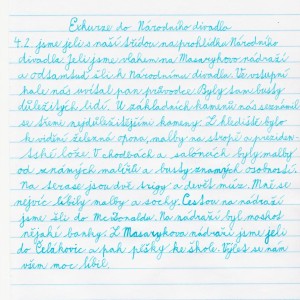 Exkurze do Národního divadla
4.2. jsme jeli s naší třídou na prohlídku Národního
divadla. Jeli jsme vlakem na Masarykovo nádraží
a odsamtud šli k Národnímu divadlu. Ve vstupní
hale nás uvítal pan průvodce. Byly tam busty
důležitých lidí. U základních kamenů nás seznámil
se třemi nejdůležitějšími kameny. Z hlediště bylo
k vidění železná opona, malby na stropě a preziden-
tské lóže. V chodbách a salónech byly malby
od známých malířů a busty známých osobností.
Na terase jsou dvě trigy a devět múz. Mně se
nejvíc líbily malby a sochy. Cestou na nádraží
jsme šli do Mc Donaldu. Na nádraží byl moshot
nějaké banky. Z Masarykova nádraží jsme jeli
do Čelákovic a pak pěšky ke škole. Výlet se nám
všem moc líbil.